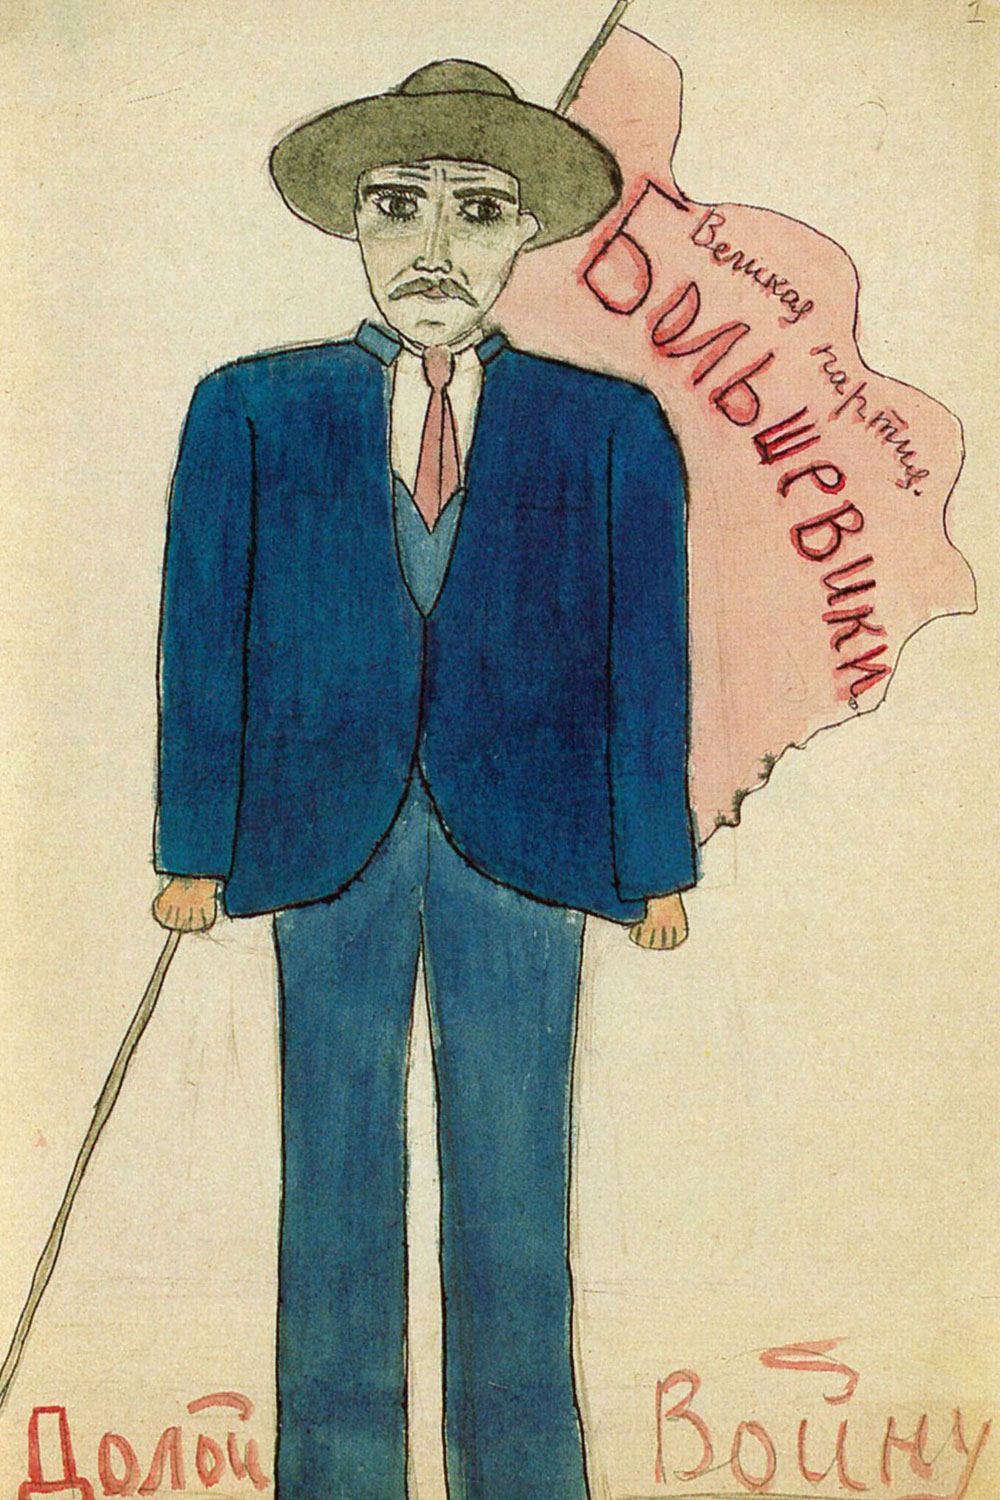 1
Великая партия.
Большевики.
Долой Войну